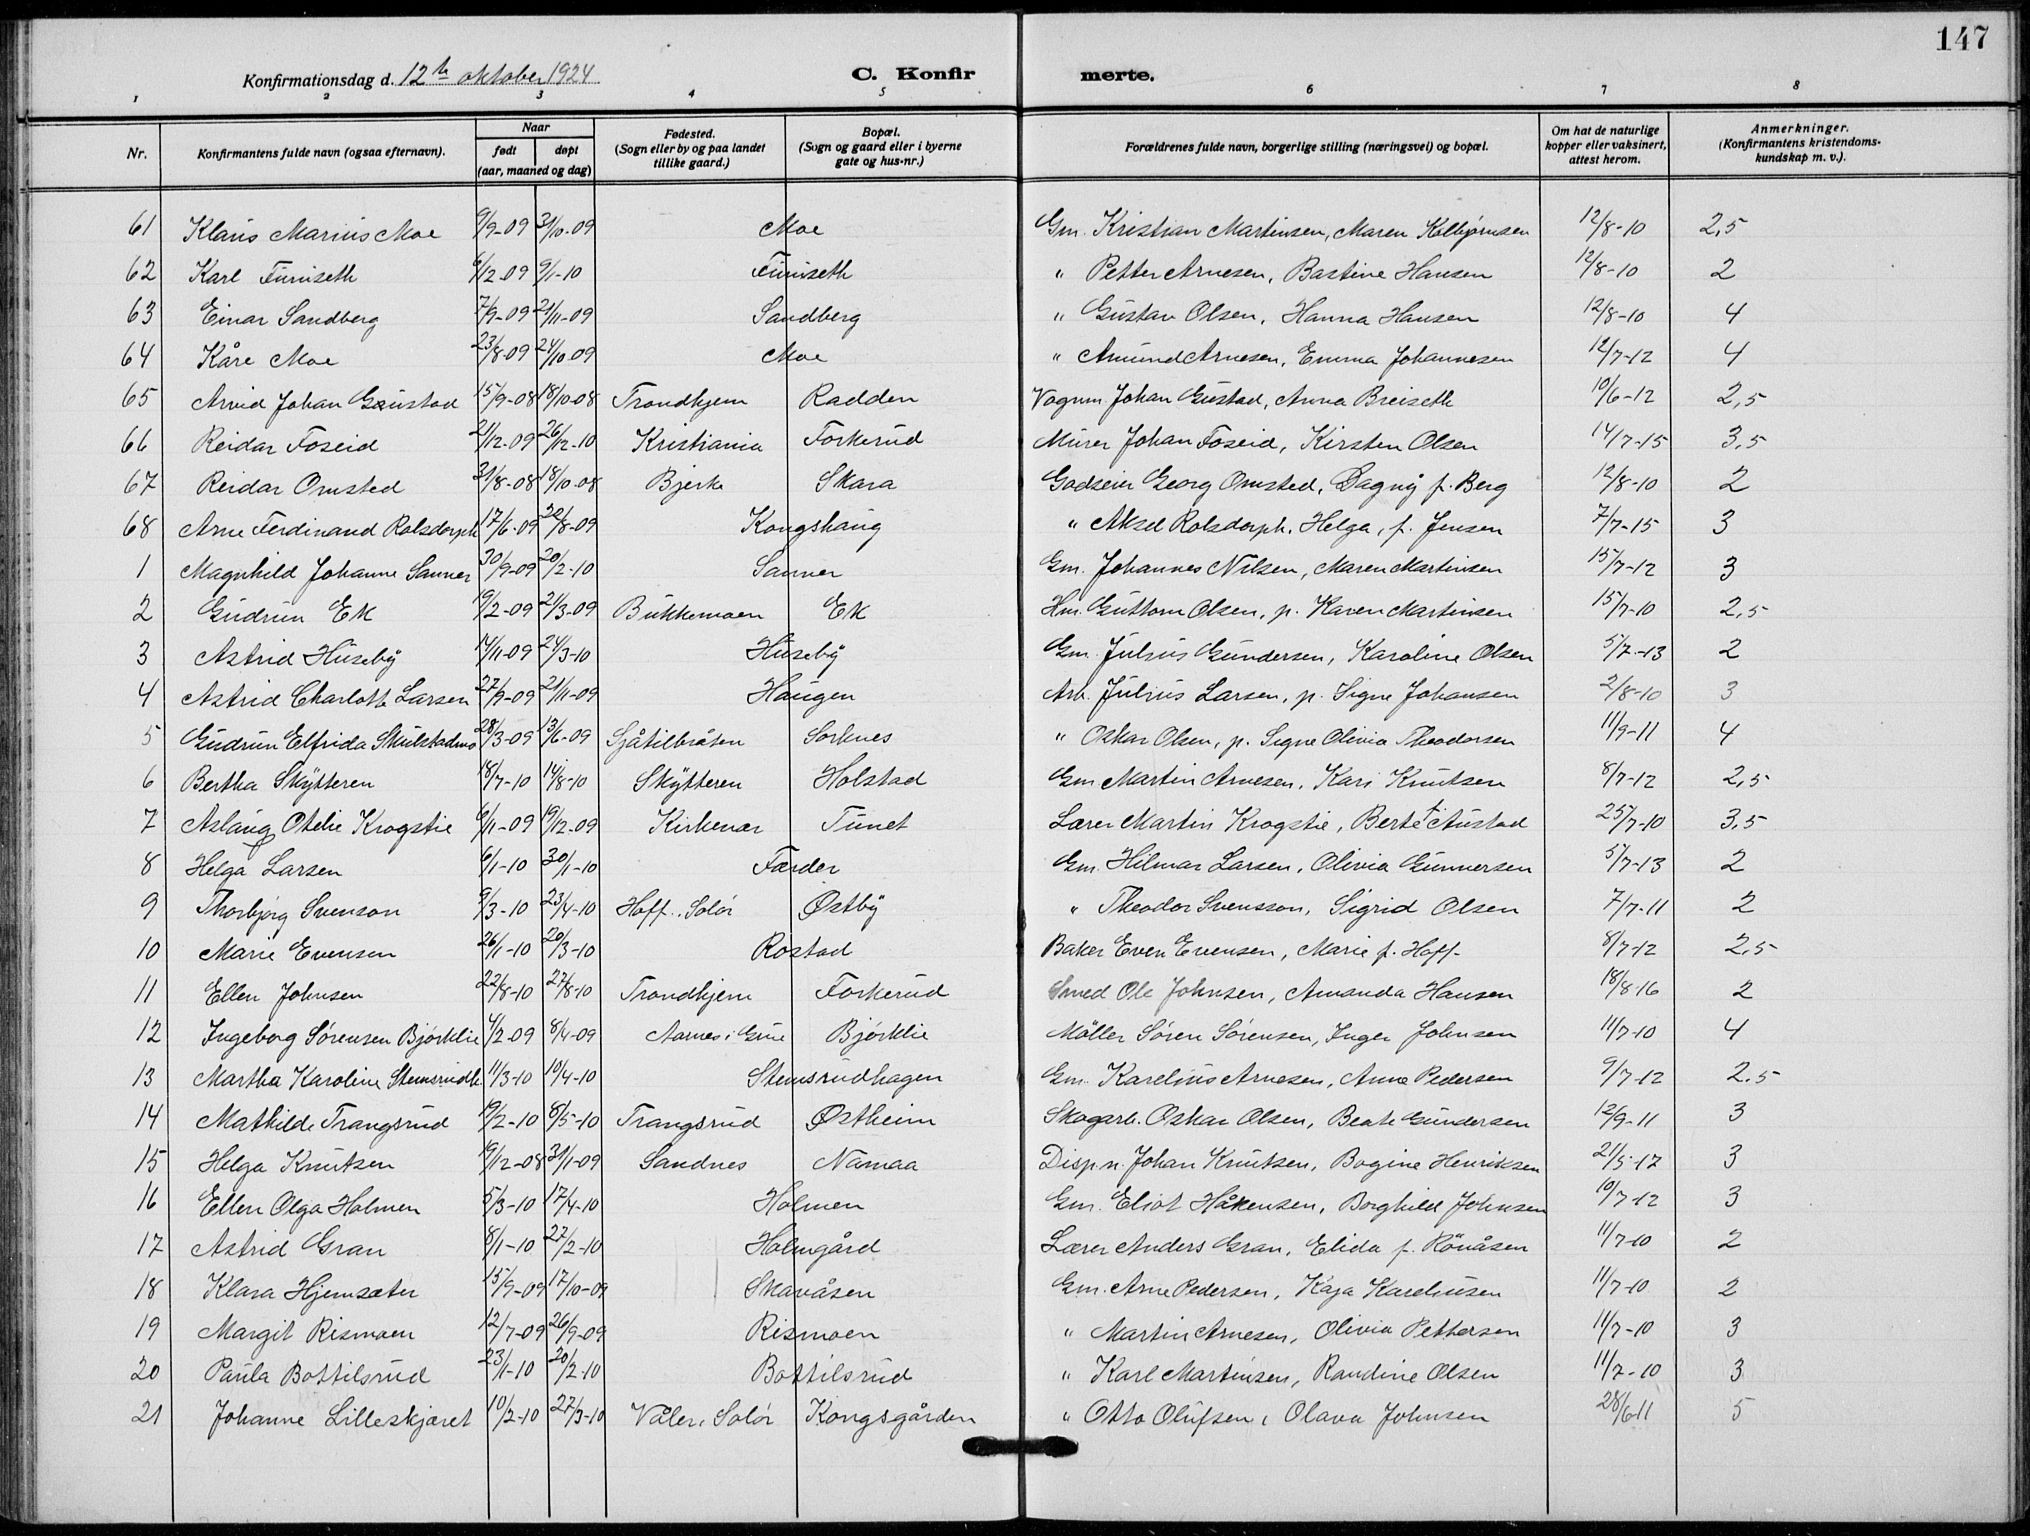 147
Konfirmationsdag d. 12te oktober 1924 C. Konfir merte.
1 2 3 4 5 6 7 8
Nr. Konfirmantens fulde navn (ogsaa efternavn). Naar født døpt (aar, maaned og dag) Fødested. (Sogn eller by og paa landet tillike gaard.) Bopæl. (Sogn og gaard eller i byerne gate og hus-nr.) Forældrenes fulde navn, borgerlige stilling (næringsvei) og bopæl. Om hat de naturlige kopper eller vaksinert, attest herom. Anmerkninger. (Konfirmantens kristendoms-kundskap m. v.).
61 Klaus Marius Moe 9/9-09 31/10-09 Moe Gm. Kristian Martinsen, Maren Kolbjørnsen 12/8-10 2,5
62 Karl Furuseth 6/12-09 9/1-10 Furuseth " Petter Arnesen, Bastine Hansen 12/8-10 2
63 Einar Sandberg 7/9-09 21/11-09 Sandberg " Gustav Olsen, Hanna Hansen 12/8-10 4
64 Kåre Moe 23/8-09 24/10-09 Moe " Amund Arnesen, Emma Johannesen 12/7-12 4
65 Arvid Johan Gustad 15/9-08 18/10-08 Trondhjem Radden Vognm. Johan Gustad, Anna Breiseth 10/6-12 2,5
66 Reidar Foseid 21/12-09 26/12-10 Kristiania Forkerud Murer Johan Foseid, Kirsten Olsen 14/7-15 3,5
67 Reidar Omsted 31/8-08 18/10-08 Bjerke Skara Godseier Georg Omsted, Dagny f. Berg 12/8-10 2
68 Arne Ferdinand Rolsdorph 17/6-09 20/8-09 Kongshaug " Aksel Rolsdorph, Helga, f. Jensen 7/7-15 3
1 Magnhild Johanne Sanner 30/9-09 20/2-10 Sanner Gm. Johannes Nilsen, Maren Martinsen 15/7-12 3
2 Gudrun Ek 19/2-09 21/3-09 Bukkemoen Ek Hm. Guttorm Olsen, p. Karen Martinsen 15/7-10 2,5
3 Astrid Huseby 14/11-09 24/3-10 Huseby Gm. Julius Gundersen, Karoline Olsen 5/7-13 2
4 Astrid Charlotte Larsen 27/9-09 21/11-09 Haugen Arb. Julius Larsen, p. Signe Johansen 2/8-10 3
5 Gudrun Elfrida Skulstadmo 28/3-09 13/6-09 Sjåtilbråten Sorknes " Oskar Olsen, p. Signe Olivia Theodorsen 11/9-11 4
6 Bertha Skytteren 18/7-10 14/8-10 Skytteren Holstad Gm Martin Arnesen, Kari Knutsen 8/7-12 2,5
7 Aslaug Otelie Krogstie 6/11-09 19/12-09 Kirkenær Tunet Lærer Martin Krogstie, Berte f. Austad 25/7-10 3,5
8 Helga Larsen 6/1-10 30/1-10 Færder Gm. Hilmar Larsen, Olivia Gunnersen 5/7-13 2
9 Thorbjørg Svenson 9/3-10 23/4-10 Hoff, Solør Østby " Theodor Svensson, Sigrid Olsen 7/7-11 2
10 Marie Evensen 26/1-10 20/3-10 Rostad Baker Even Evensen, Marie f. Hoff- 8/7-12 2,5
11 Ellen Johnsen 22/8-10 27/8-10 Trondhjem Forkerud Smed Ole Johnsen, Amanda Hansen 18/8-16 2
12 Ingeborg Sørensen Bjørklie 4/2-09 8/4-09 Aarnes i Grue Bjørklie Møller Søren Sørensen, Inger Johnsen 11/7-10 4
13 Martha Karoline Stemsrudh. 11/3-10 10/4-10 Stemsrudhagen Gm. Karelius Arnesen, Anne Pedersen 9/7-12 2.5
14 Mathilde Trangsrud 19/2-10 8/5-10 Trangsrud Østheim Skogarb. Oskar Olsen, Beate Gundersen 12/9-11 3
15 Helga Knutsen 19/12-08 31/1-09 Sandnes Namaa Disp. n. Johan Knutsen, Bogine Henriksen 21/5-17 3
16 Ellen Olga Holmen 5/3-10 17/4-10 Holmen Gm. Eliot Håkensen, Borghild Johnsen 10/7-12 3
17 Astrid Gran 8/1-10 27/2-10 Holmgård Lærer Anders Gran, Elida f. Rönåsen 11/7-10 2
18 Klara Hjemsæter 15/9-09 17/10-09 Skavåsen Gm. Arne Pedersen, Kaja Kareliusen 11/7-10 2
19 Margit Rismoen 12/7-09 26/9-09 Rismoen " Martin Arnesen, Olivia Pettersen 11/7-10 3
20 Paula Bottilsrud 23/1-10 20/2-10 Bottilsrud " Karl Martinsen, Randine Olsen 11/7-10 3
21 Johanne Lilleskjæret 10/2-10 27/3-10 Våler, Solør Kongsgården " Otto Olufsen, Olava Johnsen 28/6-11 5